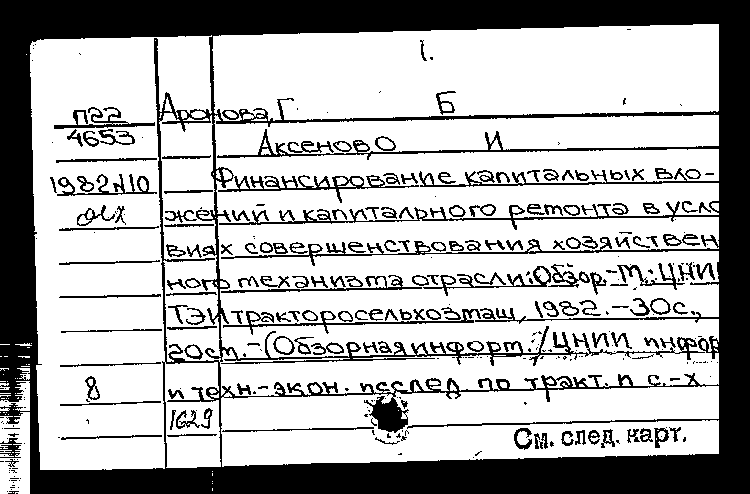 1.
П22 Аронова, Г Б
4653 Аксенов, О И
1982 N10 Финансирование капитальных вло-
жений и капитального ремонта в усло
виях совершенствования хозяйствен
ного механизма отрасли: Обзор.-М.: ЦНИИ
ТЭИтракторосельхозмаш, 1982.-30с.,
20см.-(Обзорная информ. / ЦНИИ информ
8 и техн.-экон. исслед по тракт. и с.-х
1629
См. след. карт.